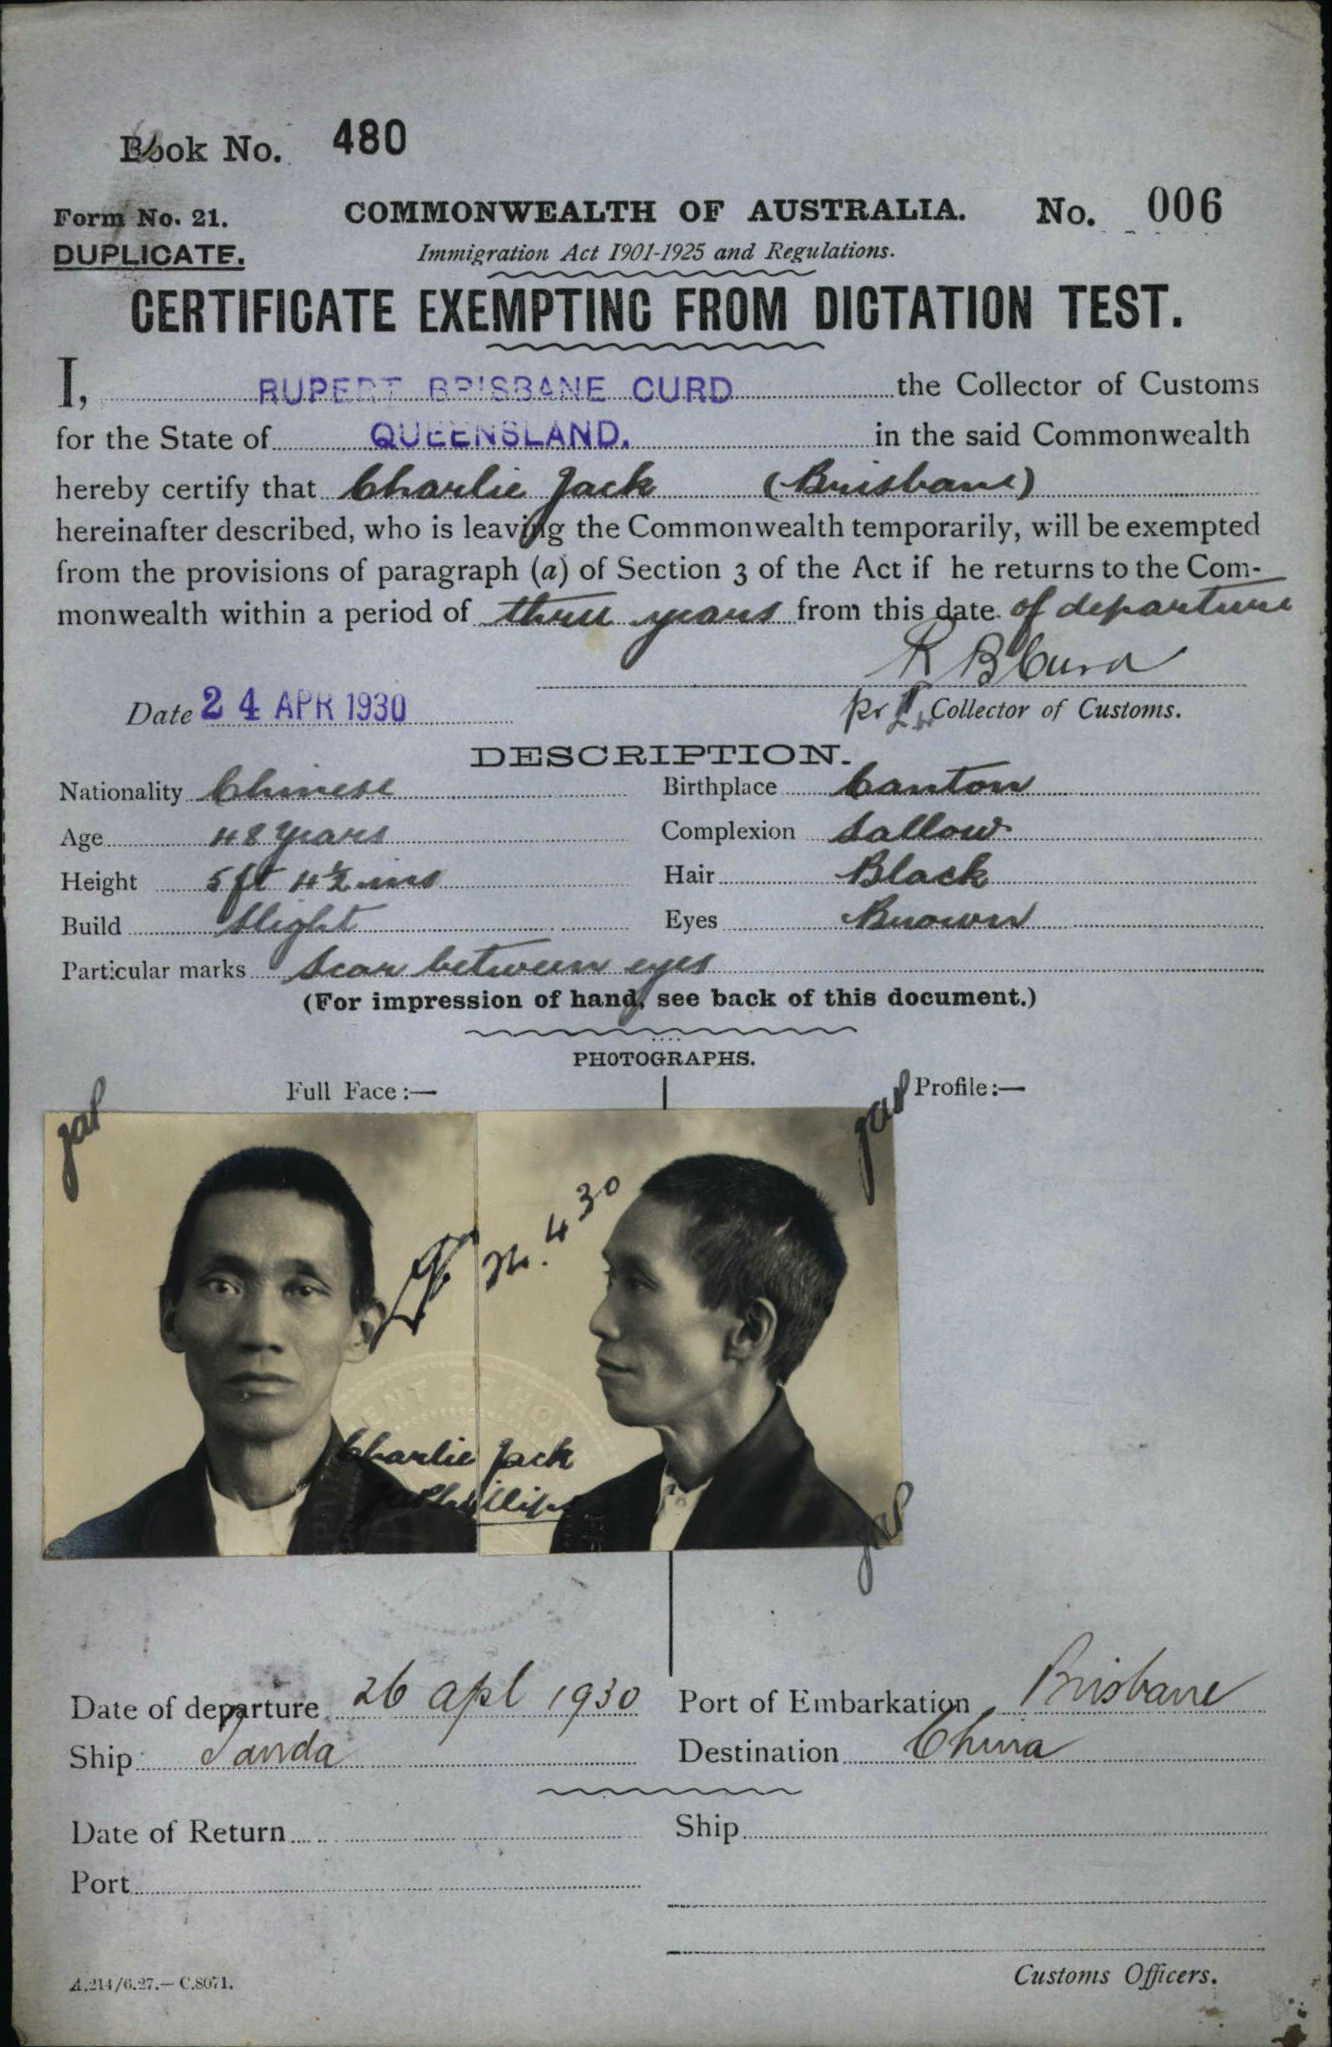 Book No. 480
Form No. 21. COMMONWEALTH OF AUSTRALIA. No. 006
DUPLICATE. Immigration Act 1901-1925 and Regulations.
CERTIFICATE EXEMPTING FROM DICTATION TEST.
I, RUPERT BRISBANE CURD the Collector of Customs
for the State of QUEENSLAND. in the said Commonwealth
hereby certify that Charlie Jack (Brisbane)
hereinafter described, who is leaving the Commonwealth temporarily, will be exempted
from the provisions of paragraph (a) of Section 3 of the Act if he returns to the Com-
monwealth within a period of three years from this date of departure
R B Curd
Date 24 APR 1930 Collector of Customs.
DESCRIPTION.
Nationality Chinese Birthplace Canton
Age 48 years Complexion Sallow
Height 5 ft 4½ ins Hair Black
Build Slight Eyes Brown
Particular marks Scar between eyes
(For impression of hand, see back of this document.)
PHOTOGRAPHS.
Full Face:— Profile:—
4 30
Charlie Jack
Phillips
Date of departure 26 Apl 1930 Port of Embarkation Brisbane
Ship Tanda Destination China
Date of Return Ship
Port
Customs Officers.
A.214/6.27.—C.8071.